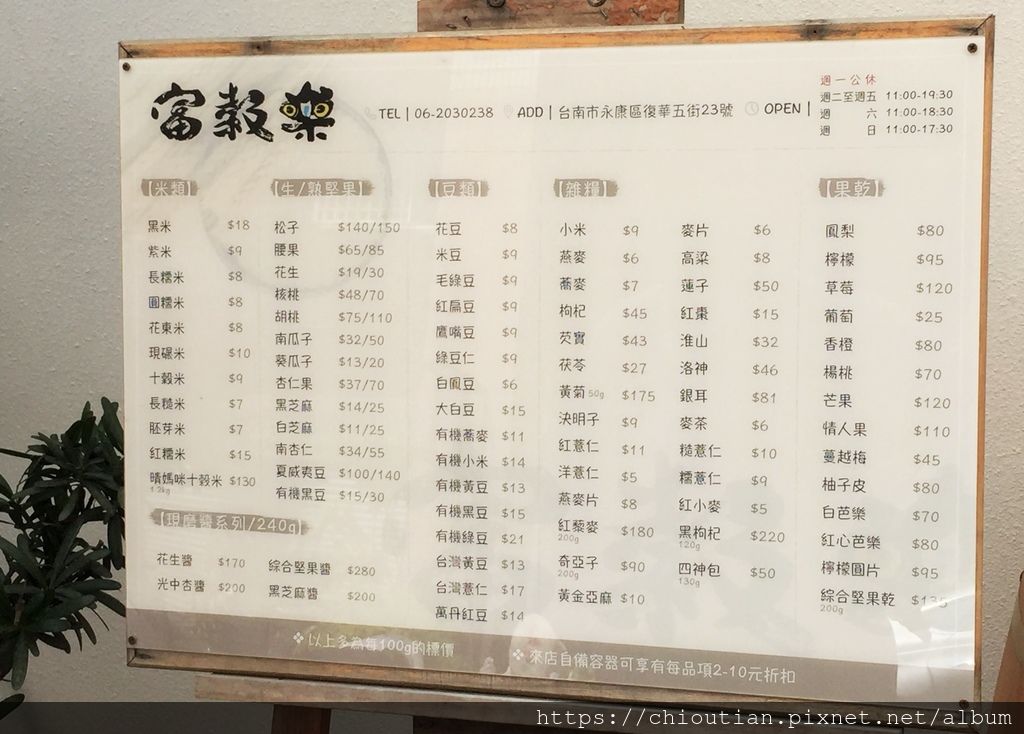 富穀樂
TEL | 06-2030238 ADD | 台南市永康區復華五街23號 OPEN |
週一公休
週二至週五 11:00-19:30
週 六 11:00-18:30
週 日 11:00-17:30
【米類】
黑米 $18
紫米 $9
長糯米 $8
圓糯米 $8
花東米 $8
現碾米 $10
十穀米 $9
長糙米 $7
胚芽米 $7
紅糯米 $15
晴媽咪十穀米 $130
1.2kg
【生/熟堅果】
松子 $140/150
腰果 $65/85
花生 $19/30
核桃 $48/70
胡桃 $75/110
南瓜子 $32/50
葵瓜子 $13/20
杏仁果 $37/70
黑芝麻 $14/25
白芝麻 $11/25
南杏仁 $34/55
夏威夷豆 $100/140
有機黑豆 $15/30
【現磨醬系列/240g】
花生醬 $170
光中杏醬 $200
綜合堅果醬 $280
黑芝麻醬 $200
【豆類】
花豆 $8
米豆 $9
毛綠豆 $9
紅扁豆 $9
鷹嘴豆 $9
綠豆仁 $9
白鳳豆 $6
大白豆 $15
有機蕎麥 $11
有機小米 $14
有機黃豆 $13
有機黑豆 $15
有機綠豆 $21
台灣黃豆 $13
台灣薏仁 $17
萬丹紅豆 $14
【雜糧】
小米 $9
燕麥 $6
蕎麥 $7
枸杞 $45
芡實 $43
茯苓 $27
黃菊 50g $175
決明子 $9
紅薏仁 $11
洋薏仁 $5
燕麥片 $8
紅藜麥 $180
200g
奇亞子 $90
200g
黃金亞麻 $10
麥片 $6
高粱 $8
蓮子 $50
紅棗 $15
淮山 $32
洛神 $46
銀耳 $81
麥茶 $6
糙薏仁 $10
糯薏仁 $9
紅小麥 $5
黑枸杞 $220
120g
四神包 $50
130g
【果乾】
鳳梨 $80
檸檬 $95
草莓 $120
葡萄 $25
香橙 $80
楊桃 $70
芒果 $120
情人果 $110
蔓越梅 $45
柚子皮 $80
白芭樂 $70
紅心芭樂 $80
檸檬圓片 $95
綜合堅果乾 $135
200g
❖ 以上多為每100g的標價
❖ 來店自備容器可享有每品項2-10元折扣
https://chioutian.pixnet.net/album